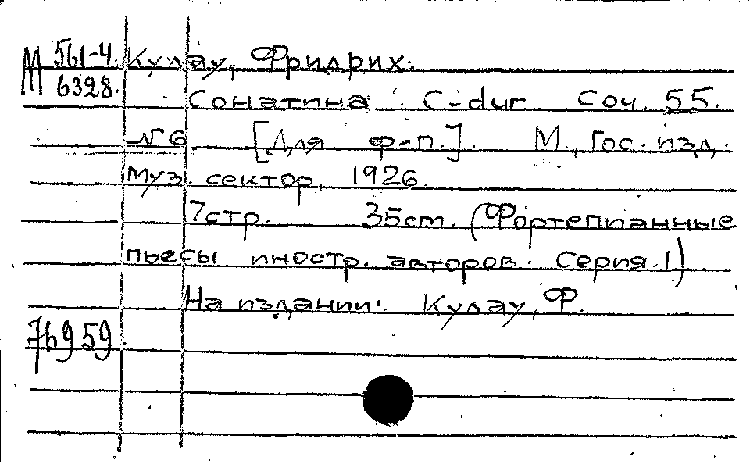 М 561-4 Кулау, Фридрих.
6328.
Сонатина C-dur Соч. 55.
№6 [Для ф-п.]. М., Гос. изд.
Муз. сектор, 1926.
7стр. 35cm. (Фортепианные
пьесы иностр. авторов. Серия 1)
На издании: Кулау, Ф.
76959